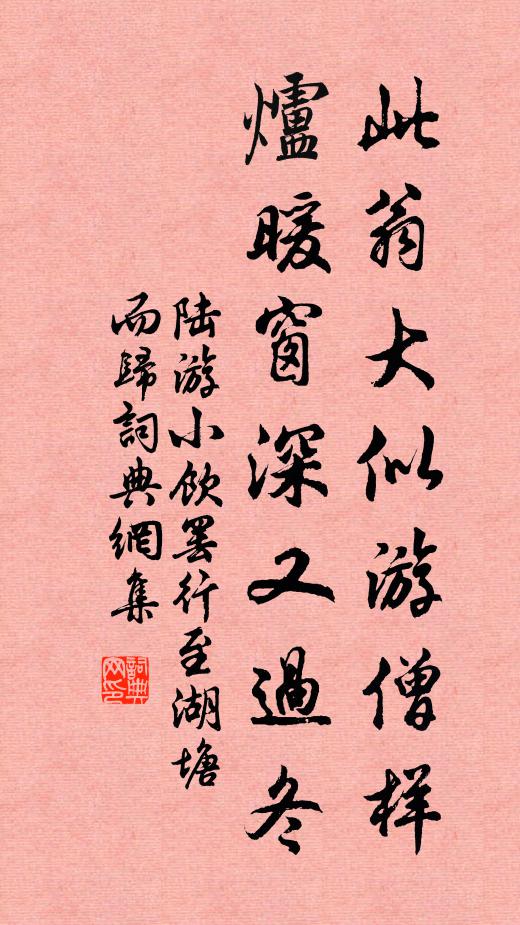 此翁大似游僧样
爐暖窗深又過冬
陆游小飲罢行至湖塘
而歸詞典網集
詞典網印